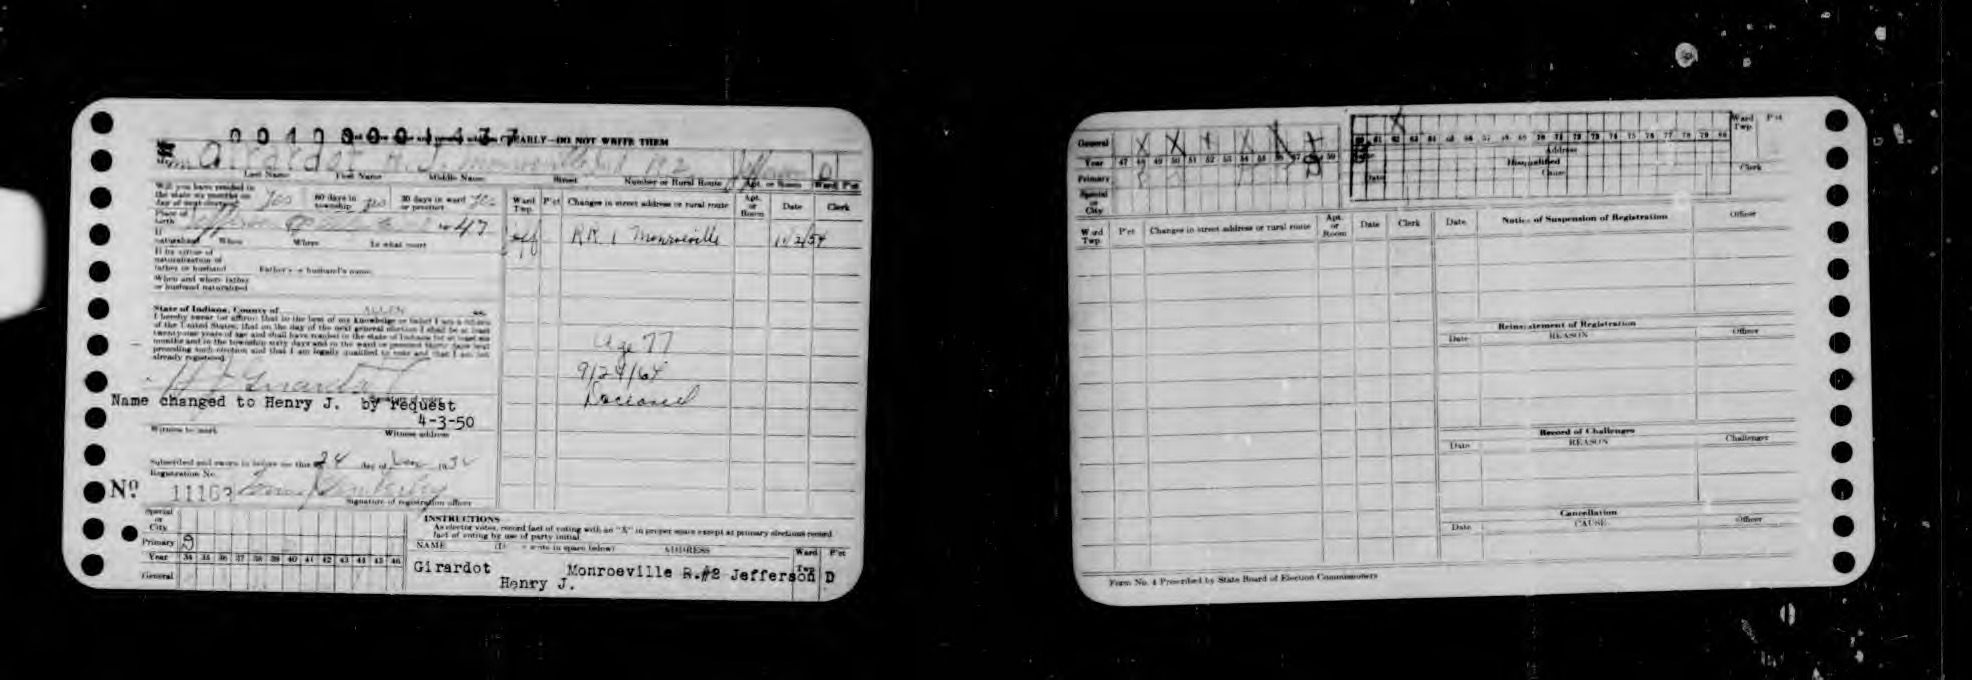 00100001477
CLEARLY—DO NOT WRITE THEM
Girardot H. J. Monroeville Ind R 2 Jefferson D
Last Name First Name Middle Name Street Number or Rural Route Apt. or Room Ward P'ct
Will you have resided in
the state six months on
day of next election Yes 60 days in
township yes 30 days in ward
or precinct yes
Place of
birth 47
If
naturalized When Where In what court
If by virtue of
naturalization of
father or husband Father's or husband's name
When and where father
or husband naturalized
State of Indiana, County of ALLEN ss.
I hereby swear (or affirm) that to the best of my knowledge or belief I am a citizen
of the United States; that on the day of the next general election I shall be at least
twenty-one years of age and shall have resided in the state of Indiana for at least six
months and in the township sixty days and in the ward or precinct thirty days next
preceding such election and that I am legally qualified to vote and that I am not
already registered.
H J Girardot
Signature of voter
Name changed to Henry J. by request
4-3-50
Witness to mark Witness address
Subscribed and sworn to before me this 24 day of
Registration No.
Nº 11163
Signature of registration officer
Ward
Twp. P'ct Changes in street address or rural route Apt.
or
Room Date Clerk
Jeff R.R. 1 Monroeville 11/2/54
Age 77
9/24/64
Deceased
Special
or
City
Primary D
Year 34 35 36 37 38 39 40 41 42 43 44 45 46
General
INSTRUCTIONS
As elector votes, record fact of voting with an "X" in proper space except at primary elections record
fact of voting by use of party initial.
NAME ADDRESS Ward
Twp P'ct
Girardot Monroeville R.#2 Jefferson D
Henry J.
General X X X X X X
Year 47 48 49 50 51 52 53 54 55 56 57 58 59
Primary
Special
or
City
X
60 61 62 63 64 65 66 67 68 69 70 71 72 73 74 75 76 77 78 79 80
Ward
Twp. P'ct
Address
Disqualified
Cause
Date
Clerk
Ward
Twp. P'ct Changes in street address or rural route Apt.
or
Room Date Clerk
Date Notice of Suspension of Registration Officer
Reinstatement of Registration
Date REASON Officer
Record of Challenges
Date REASON Challenger
Cancellation
Date CAUSE Officer
Form No. 4 Prescribed by State Board of Election Commissioners